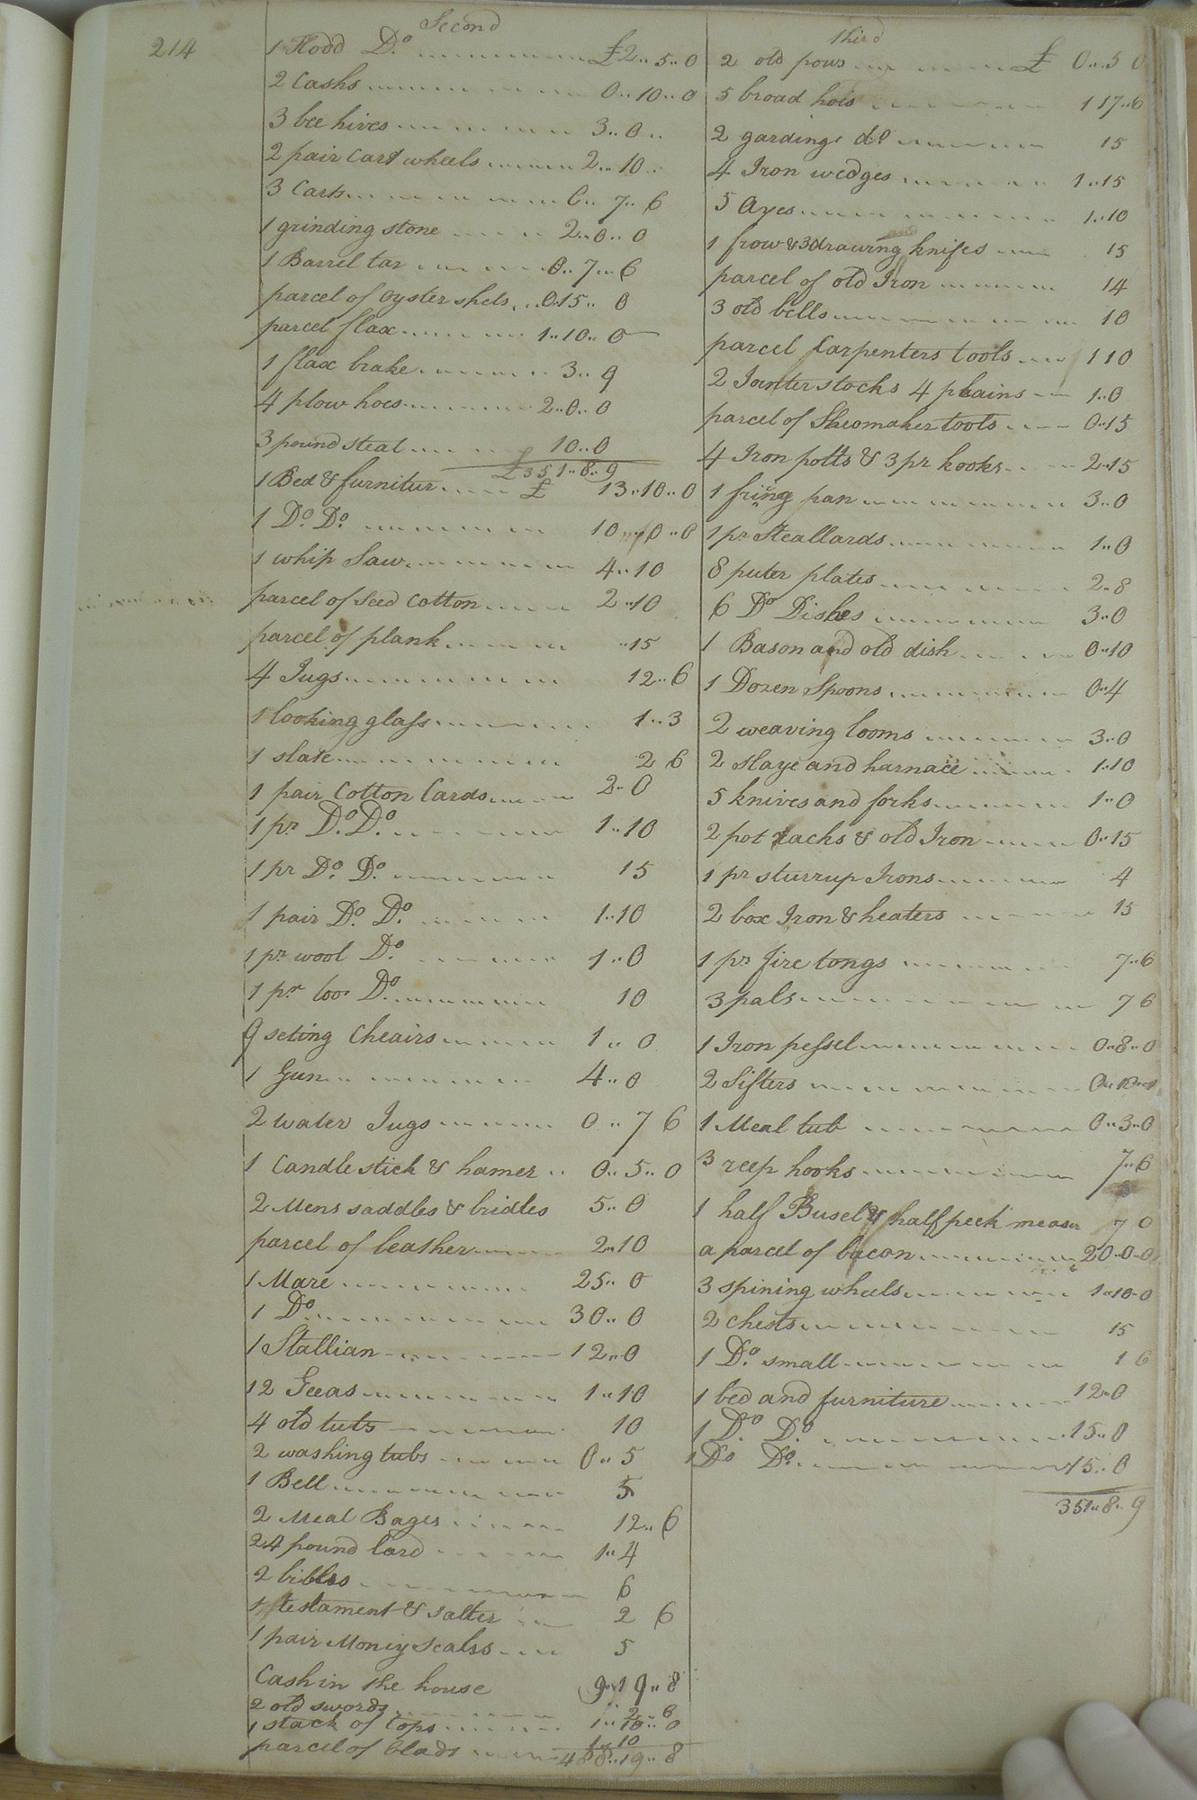 214
Second
1 Rodd Do £2..5..0
2 Casks 0..10..0
3 bee hives 3..0..
2 pair Cart wheels 2..10..
3 Carts 6..7..6
1 grinding stone 2..0..0
1 Barrel tar 0..7..6
parcel of oyster shels 0.15..0
parcel flax 1..10..0
1 flax brake 3..9
4 plow hoes 2..0..0
3 pound steal 10..0
£351..8..9
1 Bed & furnitur £ 13..10..0
1 Do Do 10..0..0
1 whip Saw 4..10
parcel of seed cotton 2..10
parcel of plank ..15
4 Jugs 12..6
1 looking glass 1..3
1 slate 2 6
1 pair Cotton Cards 2..0
1 pr Do. Do. 1..10
1 pr Do. Do. 15
1 pair Do. Do. 1..10
1 pr wool Do. 1..0
1 pr Do. 10
9 seting Cheairs 1..0
1 Gun 4..0
2 water Jugs 0..7 6
1 Candle stick & hamer 0..5..0
2 Mens saddles & bridles 5..0
parcel of leather 2..10
1 Mare 25..0
1 Do 30..0
1 Stallian 12..0
12 Geeas 1..10
4 old tubs 10
2 washing tubs 0..5
1 Bell 5
2 Meal Bages 12..6
24 pound lard 1..4
2 bibles 6
1 testament & salter 2 6
1 pair Money Scales 5
Cash in the house 9..19..8
2 old swords 2..6
1 stack of tops 1..10..0
parcel of blads 1..10
488..19..8
third
2 old pows £ 0..5 0
5 broad hoes 1 17..6
2 gardings do 15
4 Iron wedges 1..15
5 Axes 1..10
1 frow & 3 drawing knifes 15
parcel of old Iron 14
3 old bells 10
parcel Carpenters tools 1 10
2 Jointer stocks 4 plains 1..0
parcel of Sheomaker tools 0..15
4 Iron potts & 3 pr hooks 2..15
1 fring pan 3..0
1 pr Steallards 1..0
8 puter plates 2..8
6 Do Dishes 3..0
1 Bason and old dish 0..10
1 Dozen Spoons 0..4
2 weaving looms 3..0
2 slaye and harnace 1..10
5 knives and forks 1..0
2 pot racks & old Iron 0..15
1 pr sturrup Irons 4
2 box Iron & heaters 15
1 pr fire tongs 7..6
3 pals 7 6
1 Iron pessel 0..8..0
2 Sifters
1 Meal tub 0..3..0
3 reep hooks 7..6
1 half Busel & half peck measur 7 0
a parcel of bacon 20..0..0
3 spining wheels 1..10..0
2 chests 15
1 Do. small 1 6
1 bed and furniture 12..0
1 Do. Do. 15..0
1 Do Do. 15..0
351..8..9